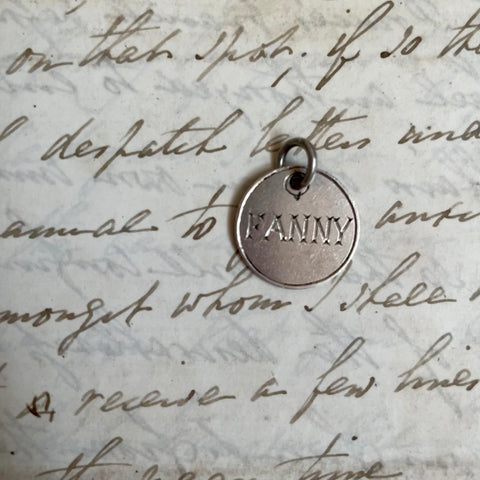 on that spot; if so the
despatch letters and
annual to
FANNY
amongst whom I shall
receive a few lines
time